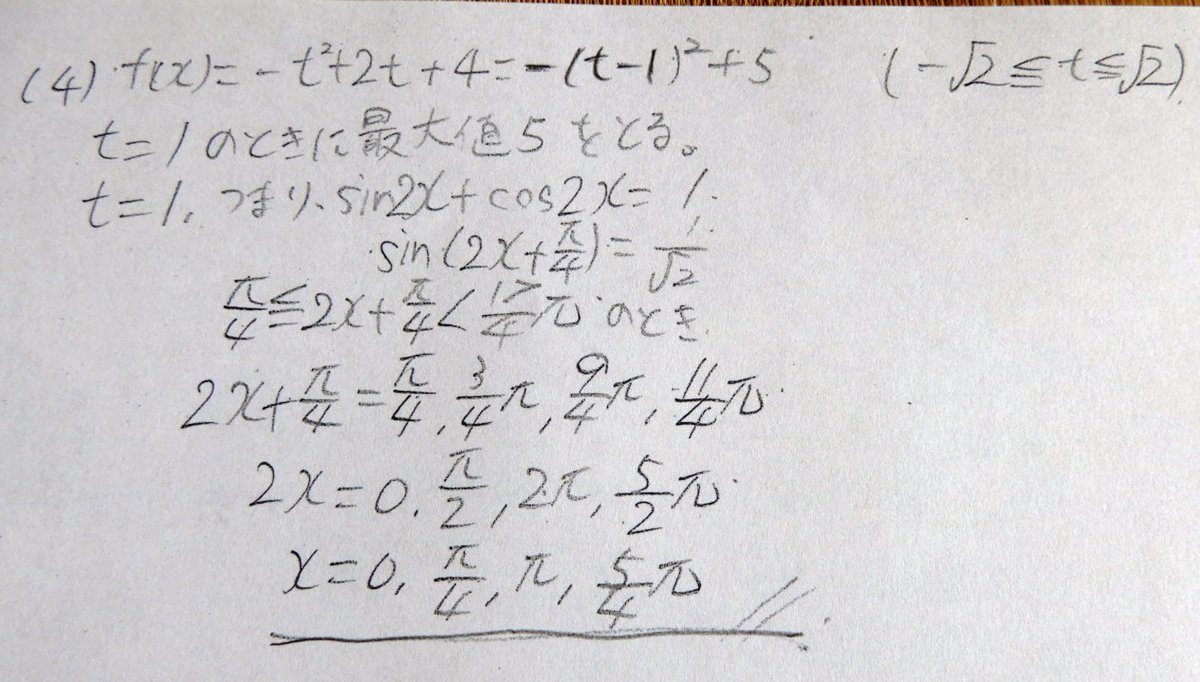 (4) f(x) = -t²+2t+4 = -(t-1)²+5 (-√2 ≦ t ≦ √2)
t=1のときに最大値5をとる。
t=1, つまり、sin2x+cos2x=1
sin(2x+π/4)=1/√2
π/4≦2x+π/4<17/4πのとき
2x+π/4=π/4, 3/4π, 9/4π, 11/4π
2x=0, π/2, 2π, 5/2π
x=0, π/4, π, 5/4π